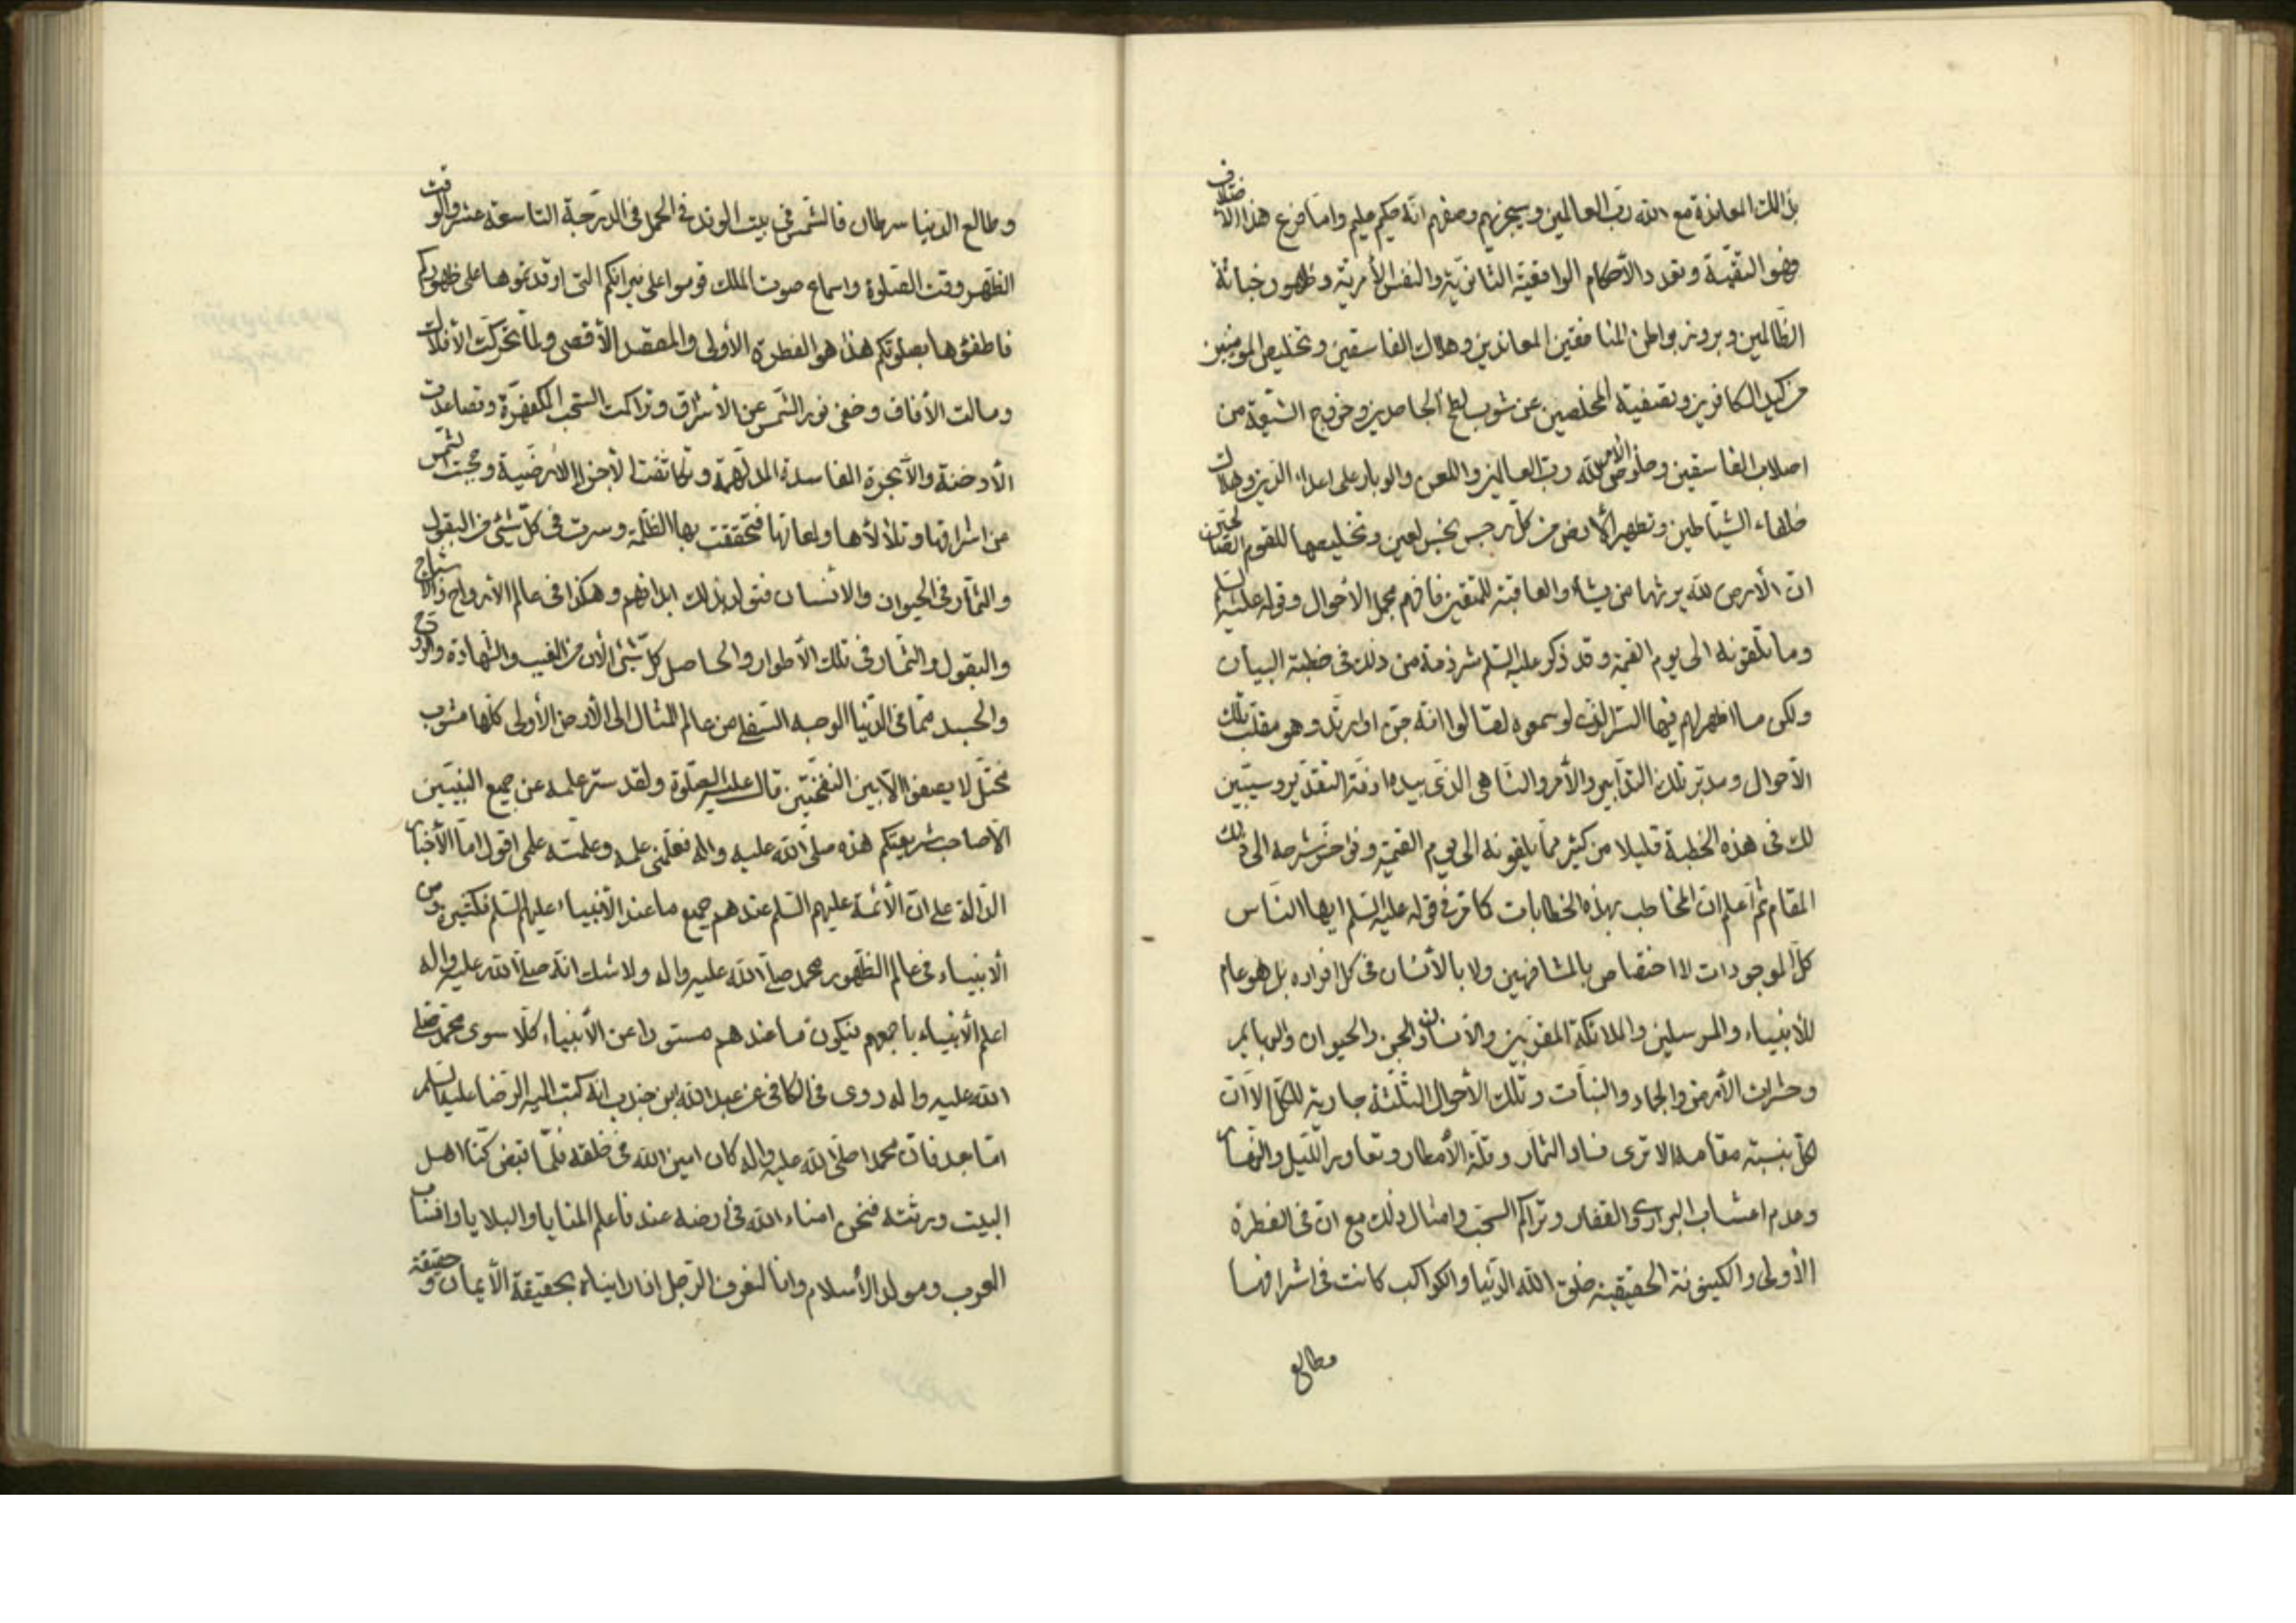 بذلك المعاندة مع الله رب العالمين وسيجزيهم وصفهم انه حكيم عليم واما فرع هذا الاختلاف
فهو التقية وتعدد الأحكام الواقعية الثانوية والنفس الأمرية وظهور خباثة
الظالمين وبروز بواطن المنافقين المعاندين وهلاك الفاسقين وتخليص المؤمنين
من كيد الكافرين وتصفية المخلصين عن شوب لطخ الجاحدين وخروج الشيعة من
اصلاب الفاسقين وخلوص الأمر لله رب العالمين واللعن والوبار على اعداء الدين وهلاك
خلفاء الشياطين وتطهير الأرض من كل رجس نجس لعين وتخليصها للقوم الصالحين
ان الأرض لله يورثها من يشاء والعاقبة للمتقين فافهم مجمل الأحوال وقوله عليه السلم
وما تلقونه الى يوم القيمة وقد ذكر عليه السلم شرذمة من ذلك فى خطبة البيان
ولكن ما اظهر لهم فيها السر الذى لو سمعوه لقالوا انه جن او ارتد وهو مقلب تلك
الأحوال ومدبر تلك التدابير والأمر والناهى الذى بيده ازمة التقدير وسيتبين
لك فى هذه الخطبة قليلا من كثير مما يلقونه الى يوم القيمة وفى شرحه الى ذلك
المقام ثم اعلم ان المخاطب بهذه الخطابات كما مر فى قوله عليه السلم ايها الناس
كل الموجودات لا اختصاص بالمشافهين ولا بالأنسان فى كل افراده بل هو عام
للأنبياء والمرسلين والملائكة المقربين والأنسان والجن والحيوان والبهايم
وحشرات الأرض والجماد والنبات وتلك الأحوال الثلثة جارية للكل الا ان
كل بنسبة مقامه الا ترى فساد الثمار وقلة الأمطار وتعاور الليل والنهار
وعدم اعشاب البرارى والقفار وتراكم السحب وامثال ذلك مع ان فى الفطرة
الأولى والكينونة الحقيقية خلق الله الدنيا والكواكب كانت فى اشرافها
وطالع
وطالع الدنيا سرطان فالشمس فى بيت الوتد فى الحمل فى الدرجة التاسعة عشر والوقت
الظهر وقت الصلوة واسماع صوت الملك قوموا على نيرانكم التى اوقدتموها على ظهوركم
فاطفئوها بصلوتكم هذا هو الفطرة الأولى والمقصد الأقصى ولما تحركت الأفلاك
ومالت الأفاق وخفى نور الشمس عن الأشراق وتراكمت السحب المكفهرة وتصاعدت
الأدخنة والأبخرة الفاسدة المدلهمة وتكاثفت الأجزاء الأرضية وحجبت الشمس
عن اشراقها وتلألأها ولمعانها فتحققت بها الظلمة وسرت فى كل شئ من البقول
والثمار فى الحيوان والانسان فتولد بذلك امراضهم وهكذا فى عالم الأرواح والأشباح
والبقول والثمار فى تلك الأطوار والحاصل كل شئ الأن من الغيب والشهادة والروح
والجسد مما فى الدنيا الوجه السفلى من عالم المثال الى الأرض الأولى كلها مشوب
مختل لا يصفوا الا بين النفختين قال عليه الصلوة ولقد ستر علمه عن جميع النبيين
الا صاحب شريعتكم هذه صلى الله عليه واله فعلمنى علمه وعلمته علمى اقول اما الأخبار
الدالة على ان الأئمة عليهم السلم عندهم جميع ما عند الأنبياء عليهم السلم فكثيرة ومن
الأنبياء فى عالم الظهور محمد صلى الله عليه واله ولا شك انه صلى الله عليه واله
اعلم الأنبياء باجمعهم فيكون ما عندهم مستورا عن الأنبياء كلا سوى محمد صلى
الله عليه واله روى فى الكافى عن عبد الله بن جندب انه كتب اليه الرضا عليه السلم
اما بعد فان محمدا صلى الله عليه واله كان امين الله فى خلقه فلما قبض كنا اهل
البيت ورثته فنحن امناء الله فى ارضه عندنا علم المنايا والبلايا وانساب
العرب ومولد الأسلام وانا لنعرف الرجل اذا رايناه بحقيقة الأيمان وحقيقة